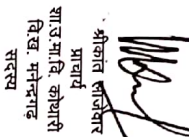 श्रीकांत सोनवार
प्राचार्य
शा.उ.मा.वि. कोथारी
वि.ख. मनेन्द्रगढ़
सदस्य